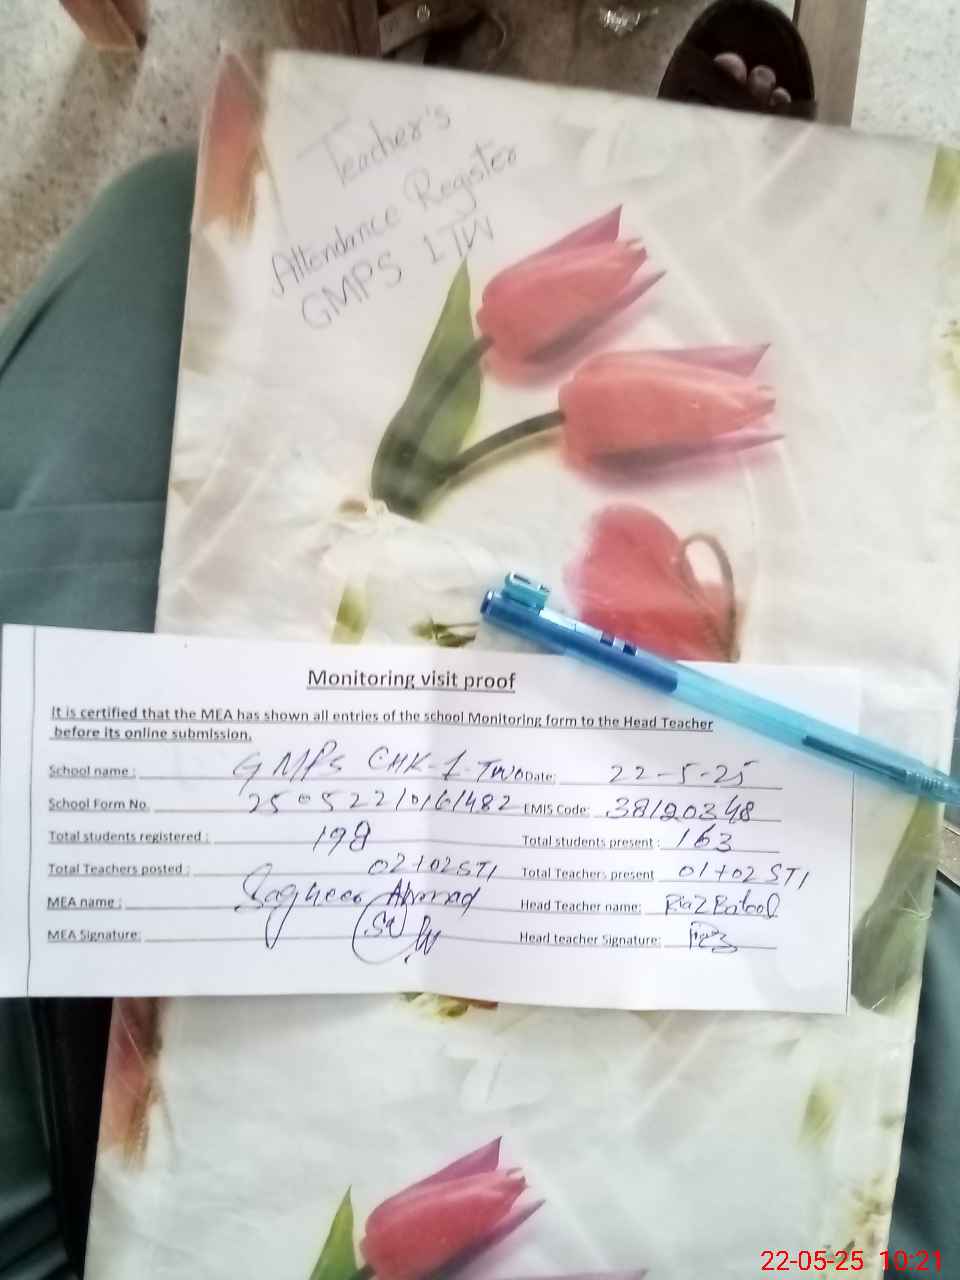 Teacher's
Attendance Register
GMPS 1TW
Monitoring visit proof
It is certified that the MEA has shown all entries of the school Monitoring form to the Head Teacher
before its online submission.
School name : GMPS CHK-1-TWO Date: 22-5-25
School Form No. EMIS Code: 38120348
Total students registered : 198 Total students present : 163
Total Teachers posted : 02+02STI Total Teachers present 01+02 STI
MEA name : Sagheer Ahmad Head Teacher name: Riaz Batool
MEA Signature: Head teacher Signature:
22-05-25 10:21